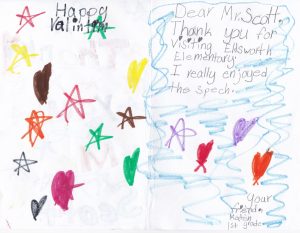 Happy
Valintin
Dear Mr. Scott.
Thank you for
Visiting Ellsworth
Elementary.
I really enjoyed
the spech.
your
friend.
1st grade